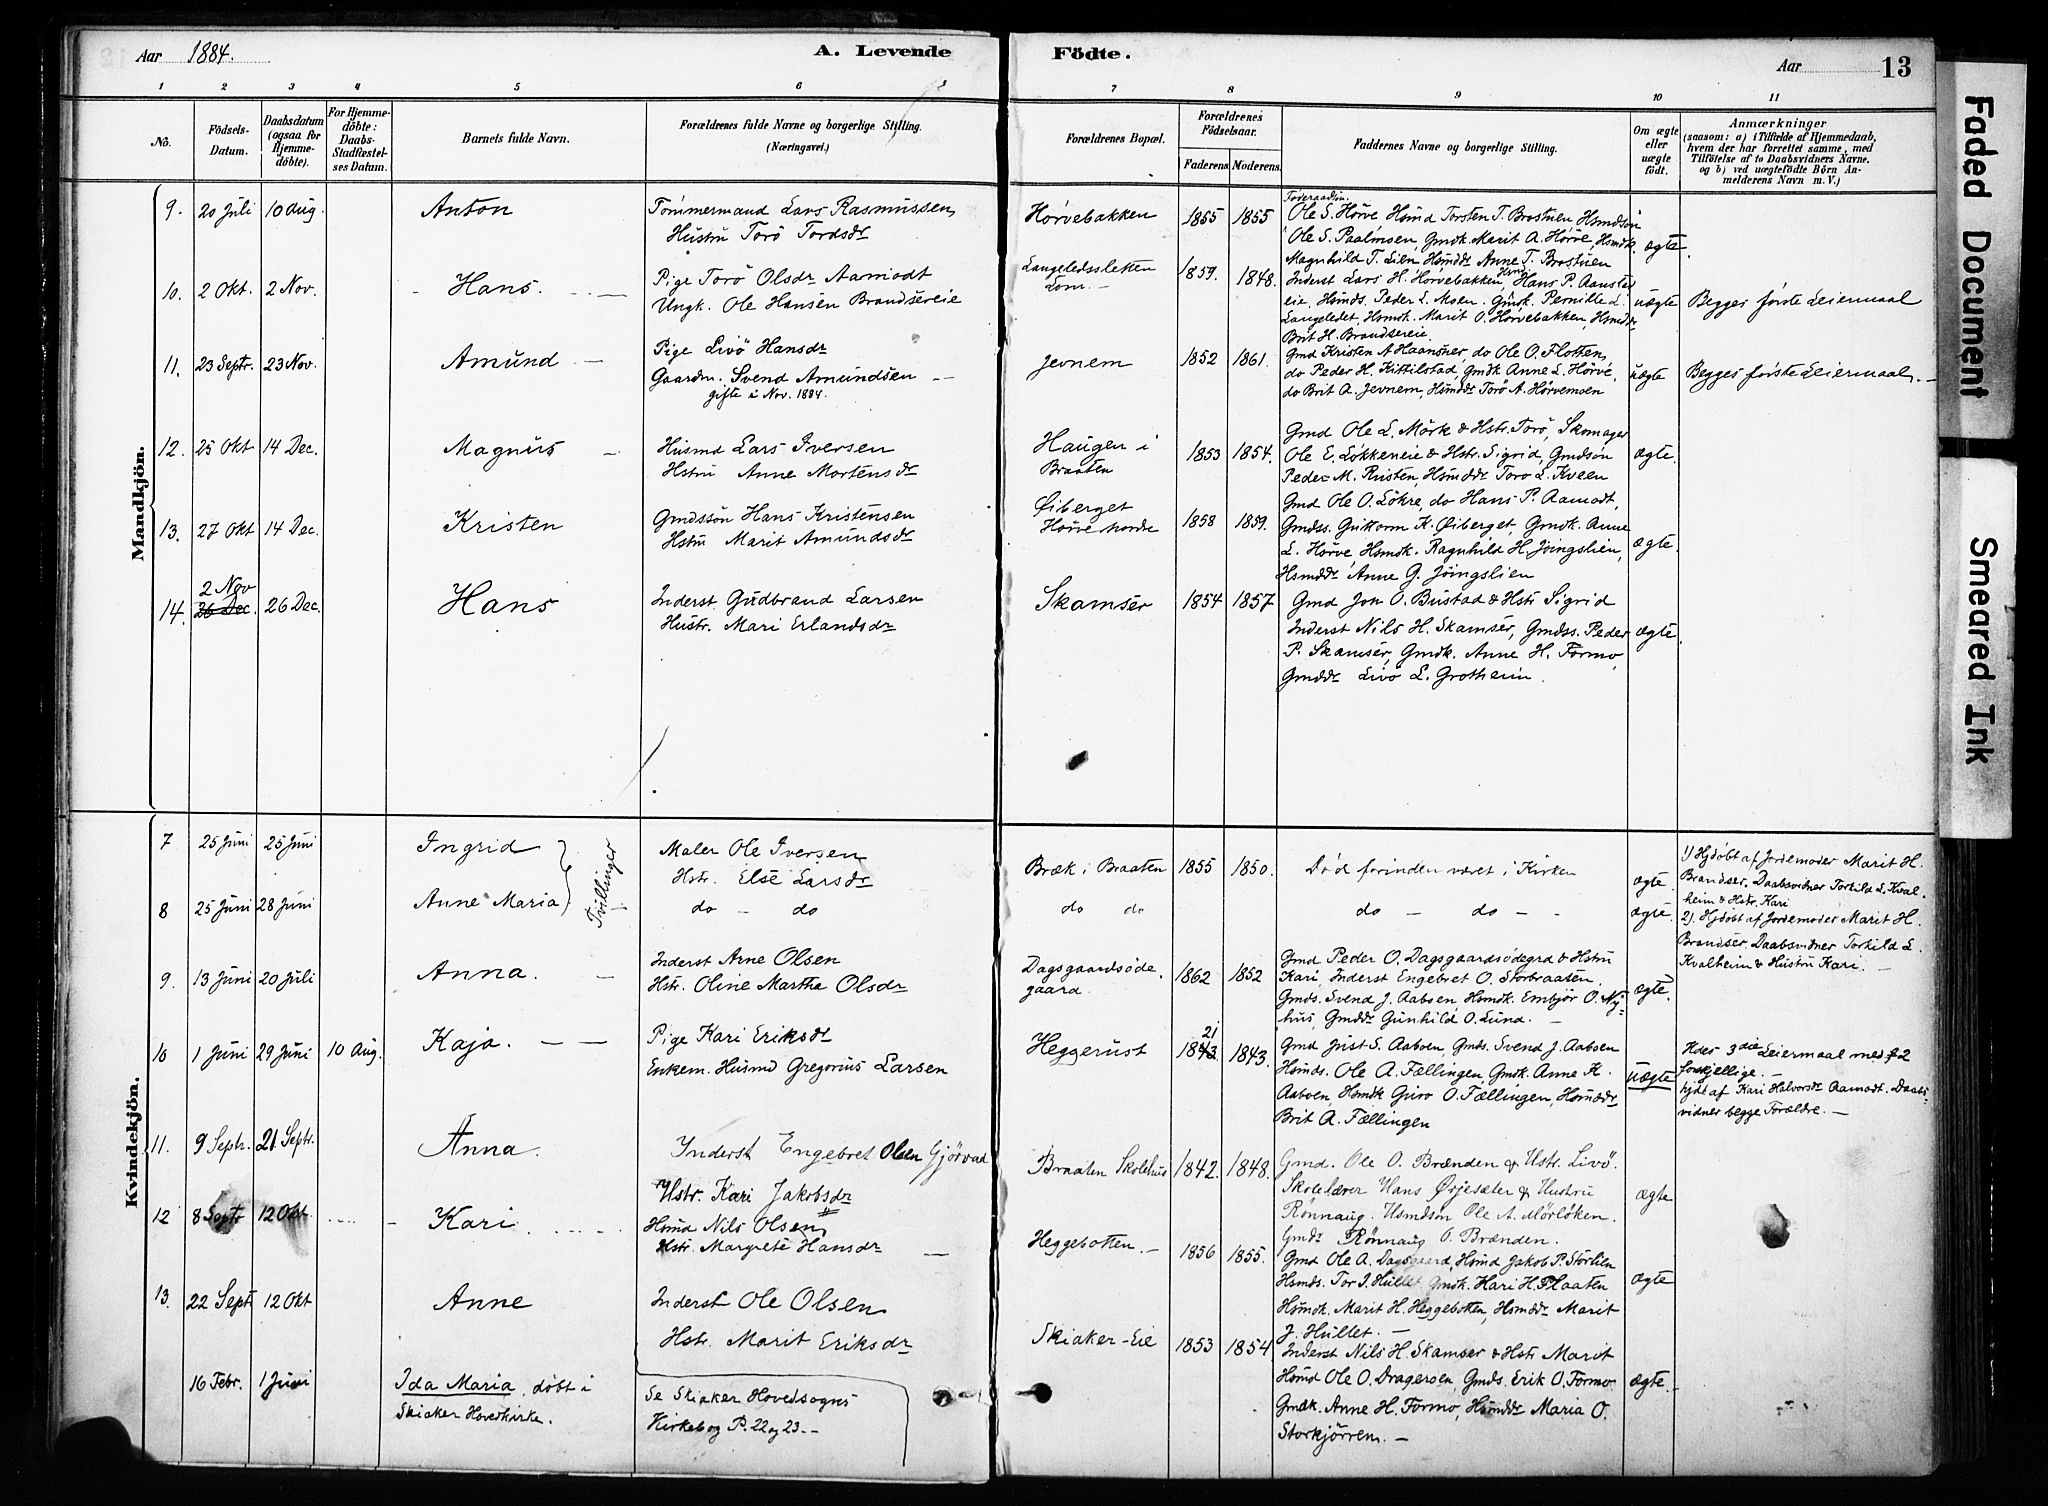 Aar 1884.
A. Levende
Födte.
Aar
13
1 2 3 4 5 6 7 8 9 10 11
No.
Födsels-
Datum.
Daabsdatum
(ogsaa for
Hjemme-
döbte).
For Hjemme-
döbte:
Daabs-
Stadfæstel-
ses Datum.
Barnets fulde Navn.
Forældrenes fulde Navne og borgerlige Stilling.
(Næringsvei.)
Forældrenes Bopæl.
Forældrenes
Födselsaar.
Faderens. Moderens.
Faddernes Navne og borgerlige Stilling.
Om ægte
eller
uægte
födt.
Anmærkninger
(saasom: a) i Tilfælde af Hjemmedaab,
hvem der har forrettet samme, med
Tilföielse af to Daabsvidners Navne.
og b) ved uægtefödte Börn An-
melderens Navn m. V.)
Mandkjön.
9. 20 Juli 10 Aug. Anton
Tömmermand Lars Rasmussen
Hustru Torö Tordsdr
Hörvebakken 1855 1855
Föderaadsm.
Ole S. Hörve Hsmd Torsten T. Brostuen Hsmdsön
Ole S. Paalmsen, Gmdk. Marit A. Hörve, Hsmdk.
Magnhild T. Lien Hsmddr Anne T. Brostuen
ægte.
10. 2 Okt. 2 Nov. Hans.
Pige Torö Olsdr Aamodt
Ungk. Ole Hansen Brandsereie
Langeledssletten
Lom. 1859. 1848.
Inderst Lars H. Hörvebakken, Hans P. Aanstad
eie, Hsmds. Peder L. Moen. Gmdk. Pernille L.
Langeledet, Hsmdk. Marit O. Hörvebakken, Hsmddr
Brit H. Brandsereie
uægte
Begges förste Leiermaal
11. 23 Septr. 23 Nov. Amund
Pige Livö Hansdr
Gaardm. Svend Amundsen
gifte i Nov. 1884.
Jevnem 1852 1861.
Gmd Kristen A Haansnar, do Ole O. Flotten,
do Peder H. Kittilstad, Gmdk Anne L. Hörve,
do Brit A. Jevnem, Hsmddr Torö A. Hörvemoen
uægte
Begges förste Leiermaal. -
12. 25 Okt 14 Dec. Magnus
Husmd Lars Iversen
Hstru Anne Mortensdr
Haugen i
Braaten 1853 1854.
Gmd Ole L. Mörk & Hstr. Torö, Skomager
Ole E. Lökkeneie & Hstr. Sigrid, Gmdsön
Peder M. Risten, Hsmddr Torö L. Kveen
ægte.
13. 27 Okt 14 Dec. Kristen
Gmdssön Hans Kristensen
Hstru Marit Amundsdr
Øiberget
Hörve nordre 1858 1859.
Gmd Ole O. Lökre, do Hans P. Aamodt,
Gmdss. Guttorm K. Øiberget, Gmdk. Anne
L. Hörve Hsmdk. Ragnhild H. Jöingslien,
Hsmddr Anne G. Jöingslien
ægte.
14. 2 Nov
26 Dec. 26 Dec. Hans
Inderst Gudbrand Larsen
Hustr. Mari Erlandsdr
Skamser 1854 1857
Gmd Jon O. Bustad & Hstr Sigrid
Inderst Nils H. Skamser, Gmdss. Peder
P. Skamser, Gmdk. Anne H. Formo,
Gmddr Livö L. Grotheim.
ægte.
Kvindekjön.
7 25 Juni 25 Juni Ingrid
Tvillinger
Maler Ole Iversen
Hstr. Else Larsdr
Bræk i Braaten 1855 1850.
Död forinden været i Kirken
ægte
1) Hjdöbt af Jordemoder Marit H.
Brandser. Daabsvidner Torkild L. Kval-
heim & Hstr. Kari
8 25 Juni 28 Juni Anne Maria
do - do
do do
do - do -
ægte.
2). Hjdöbt af Jordemoder Marit H.
Brandser. Daabsvidner Torkild L.
Kvalheim & Hustru Kari. -
9. 13 Juni 20 Juli Anna.
Inderst Arne Olsen
Hstr. Oline Martha Olsdr
Dagsgaardsöde
gaard. 1862 1852
Gmd Peder O. Dagsgaardsödegrd & Hstru
Kari, Inderst Engebret O. Storbraaten.
Gmds. Svend J. Aaboen Hsmdk. Embjör O. Ny-
hus, Gmddr Gunhild O. Lund. -
ægte.
10 1 Juni 29 Juni 10 Aug. Kaja.
Pige Kari Eriksdr
Enkem. Husmd Gregorius Larsen
Heggerust 21
1843. 1843.
Gmd Just S. Aaboen, Gmds. Svend J. Aaboen
Hsmds. Ole A. Fællingen Gmdk. Anne K.
Aaboen, Hsmdk Guro O. Fællingen, Hsmddr
Brit A. Fællingen
uægte
Hdes 3die Leiermaal med 2
forskjellige. -
hjdt af Kari Halvorsdr Aamodt. Daabs-
vidner begge Forældre. -
11. 9 Septr. 21 Septr. Anna.
Inderst Engebret Olsen Gjörvad
Hstr. Kari Jakobsdr
Braaten Skolehus 1842. 1848.
Gmd. Ole O. Brænden & Hstr. Livö.
Skolelærer Hans Örjesæter & Hustru
Rönnaug. Hsmdsön Ole A. Mörlöken.
Gmdr Rönnaug O. Brænden.
ægte
12 8 Septr 12 Okt. Kari
Hsmd Nils Olsen
Hstr. Margrete Hansdr
Heggebotten. - 1856 1855.
Gmd Ole A. Dagsgaard, Hsmd Jakob P. Storlien
Hsmds. Tor J. Hullet Gmdk. Kari H. Plaaten
Hsmdk. Marit H. Heggebotten, Hsmddr Marit
J. Hullet. -
ægte
13. 22 Sept 12 Okt Anne
Inderst Ole Olsen
Hstr. Marit Eriksdr
Skiaker-Eie 1853 1854
Inderst Nils H. Skamser & Hstr Marit
Hsmd Ole O. Drageroen, Gmds. Erik O. Formo.
Gmdk. Anne H. Formo, Hsmddr Maria O.
Storkjörren. -
ægte.
16 Febr. 1 Juni Ida Maria, döbt i
Skiaker Hovedkirke.
Se Skiaker Hovedsogns
Kirkebog P. 22 og 23. -
Faded Document
Smeared Ink